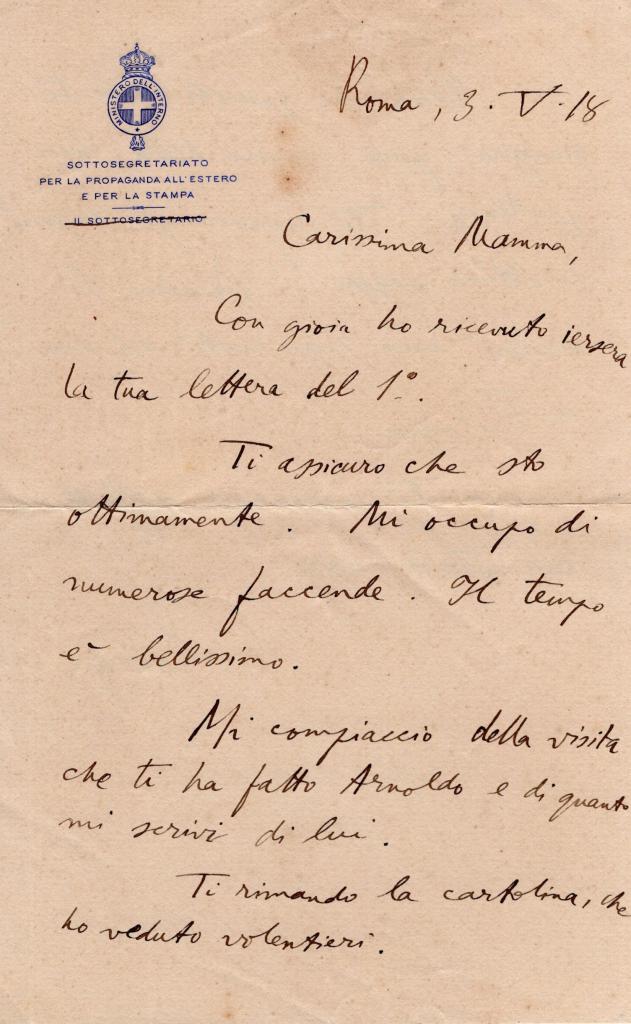 MINISTERO DELL'INTERNO
SOTTOSEGRETARIATO
PER LA PROPAGANDA ALL'ESTERO
E PER LA STAMPA
IL SOTTOSEGRETARIO
Roma, 3. V. 18
Carissima Mamma,
Con gioia ho ricevuto iersera
la tua lettera del 1º.
Ti assicuro che sto
ottimamente. Mi occupo di
numerose faccende. Il tempo
è bellissimo.
Mi compiaccio della visita
che ti ha fatto Arnoldo e di quanto
mi scrivi di lui.
Ti rimando la cartolina, che
ho veduto volentieri.